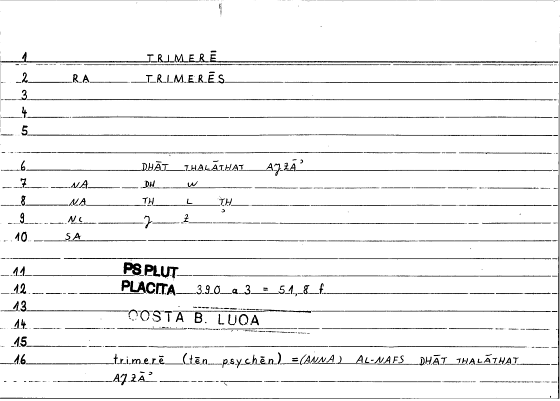 1 TRIMERĒ
2 RA TRIMERĒS
3
4
5
6 DHĀT THALĀTHAT AJZĀʾ
7 NA DH W
8 NA TH L TH
9 NC J Z ʾ
10 SA
11 PS PLUT
12 PLACITA 390 a 3 = 51,8 f.
13
14 COSTA B. LUCA
15
16 trimerē (tēn psychēn) = (ANNA) AL-NAFS DHĀT THALĀTHAT
AJZĀʾ